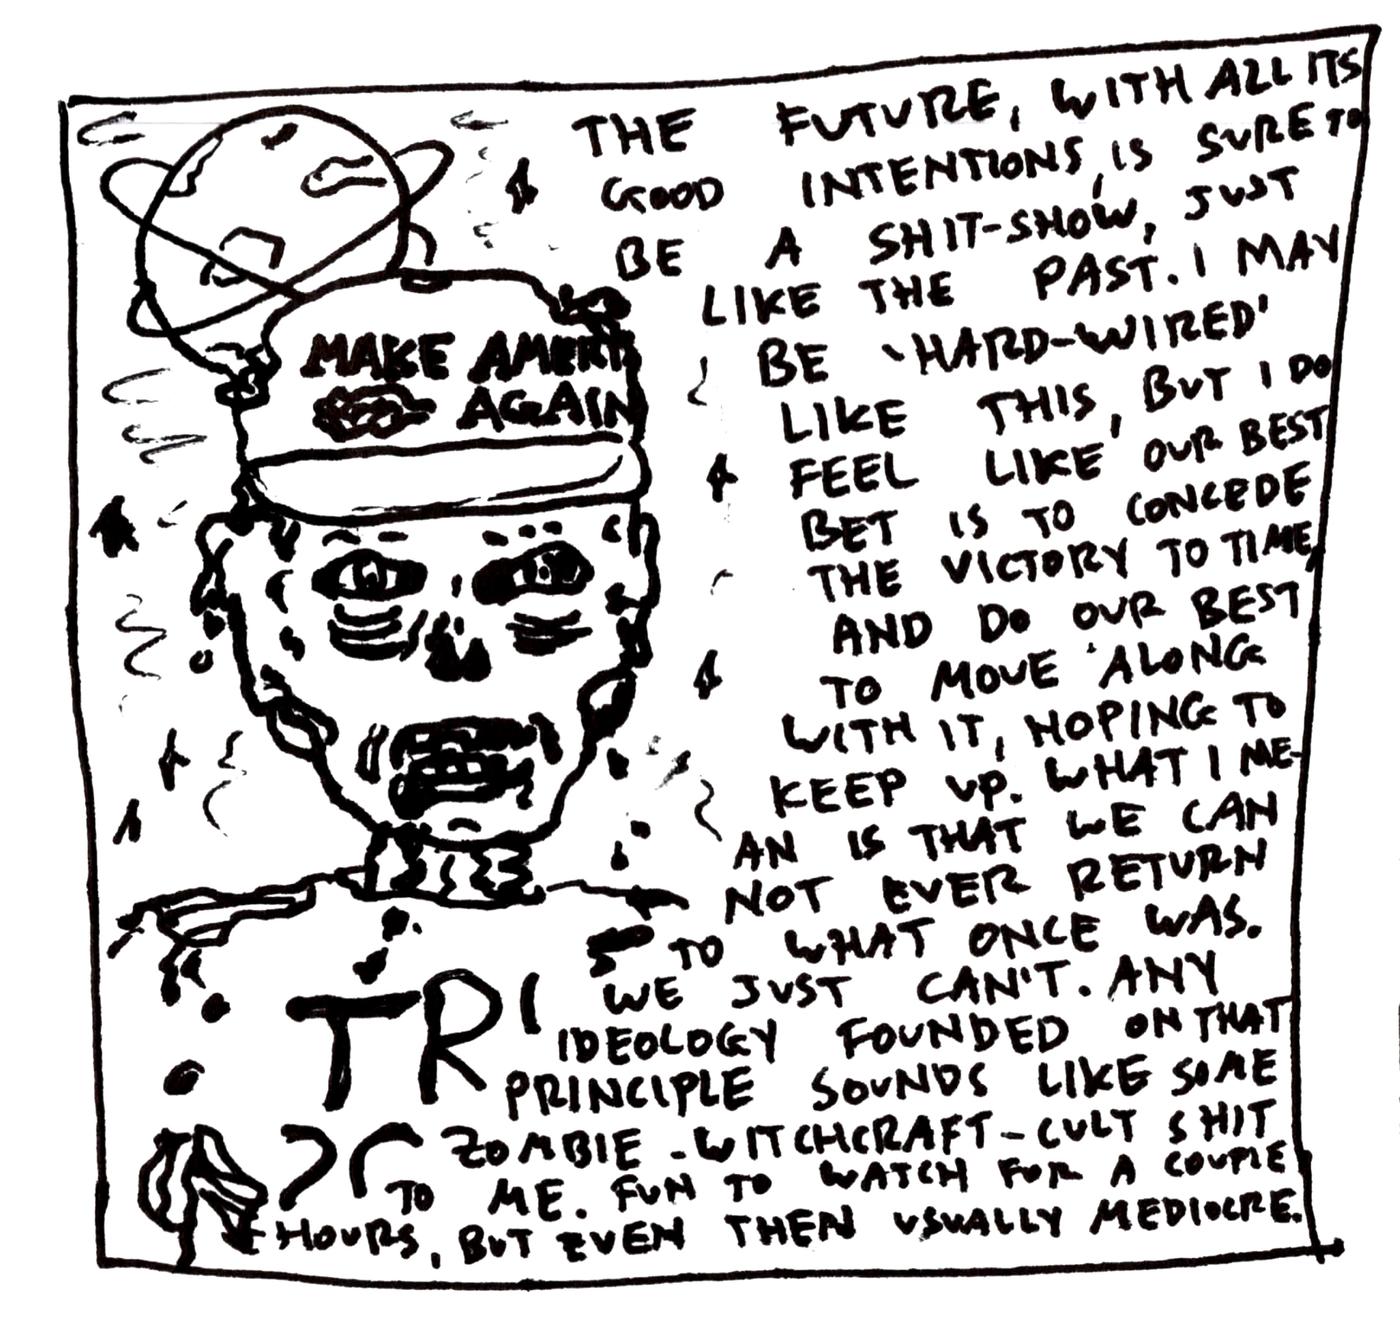 THE FUTURE, WITH ALL ITS
GOOD INTENTIONS, IS SURE TO
BE A SHIT-SHOW, JUST
LIKE THE PAST. I MAY
BE 'HARD-WIRED'
LIKE THIS, BUT I DO
FEEL LIKE OUR BEST
BET IS TO CONCEDE
THE VICTORY TO TIME,
AND DO OUR BEST
TO MOVE ALONG
WITH IT, HOPING TO
KEEP UP. WHAT I ME-
AN IS THAT WE CAN
NOT EVER RETURN
TO WHAT ONCE WAS.
WE JUST CAN'T. ANY
IDEOLOGY FOUNDED ON THAT
PRINCIPLE SOUNDS LIKE SOME
ZOMBIE-WITCHCRAFT-CULT SHIT
TO ME. FUN TO WATCH FOR A COUPLE
HOURS, BUT EVEN THEN USUALLY MEDIOCRE.
MAKE AMERI
AGAIN
TR